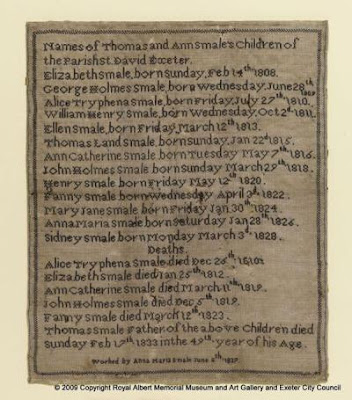 Names of Thomas and Ann Smale's Children of
the Parish St David Exeter.
Elizabeth Smale, born Sunday, Feb 14th 1808.
George Holmes Smale, born Wednesday, June 28th 1809
Alice Tryphena Smale, born Friday, July 27th 1810.
William Henry Smale, born Wednesday, Oct 2d 1811.
Ellen Smale, born Friday, March 12th 1813.
Thomas Land Smale, born Sunday, Jan 22d 1815.
Ann Catherine Smale, born Tuesday May 7th 1816.
John Holmes Smale born Sunday March 29th 1818.
Henry Smale born Friday May 12th 1820.
Fanny Smale born Wednesday April 3d 1822.
Mary Jane Smale born Friday Jan 30th 1824.
Anna Maria Smale born Saturday Jan 28th 1826.
Sidney Smale born Monday March 3d 1828.
Deaths.
Alice Tryphena Smale died Dec 26th 1810.
Elizabeth Smale died Jan 25th 1812.
Ann Catherine Smale died March 11th 1817.
John Holmes Smale died Dec 5th 1819.
Fanny Smale died March 12th 1823.
Thomas Smale Father of the above Children died
Sunday Feb 17th 1833 in the 49th year of his Age.
Worked by Anna Maria Smale June 8th 1837.
© 2009 Copyright Royal Albert Memorial Museum and Art Gallery and Exeter City Council